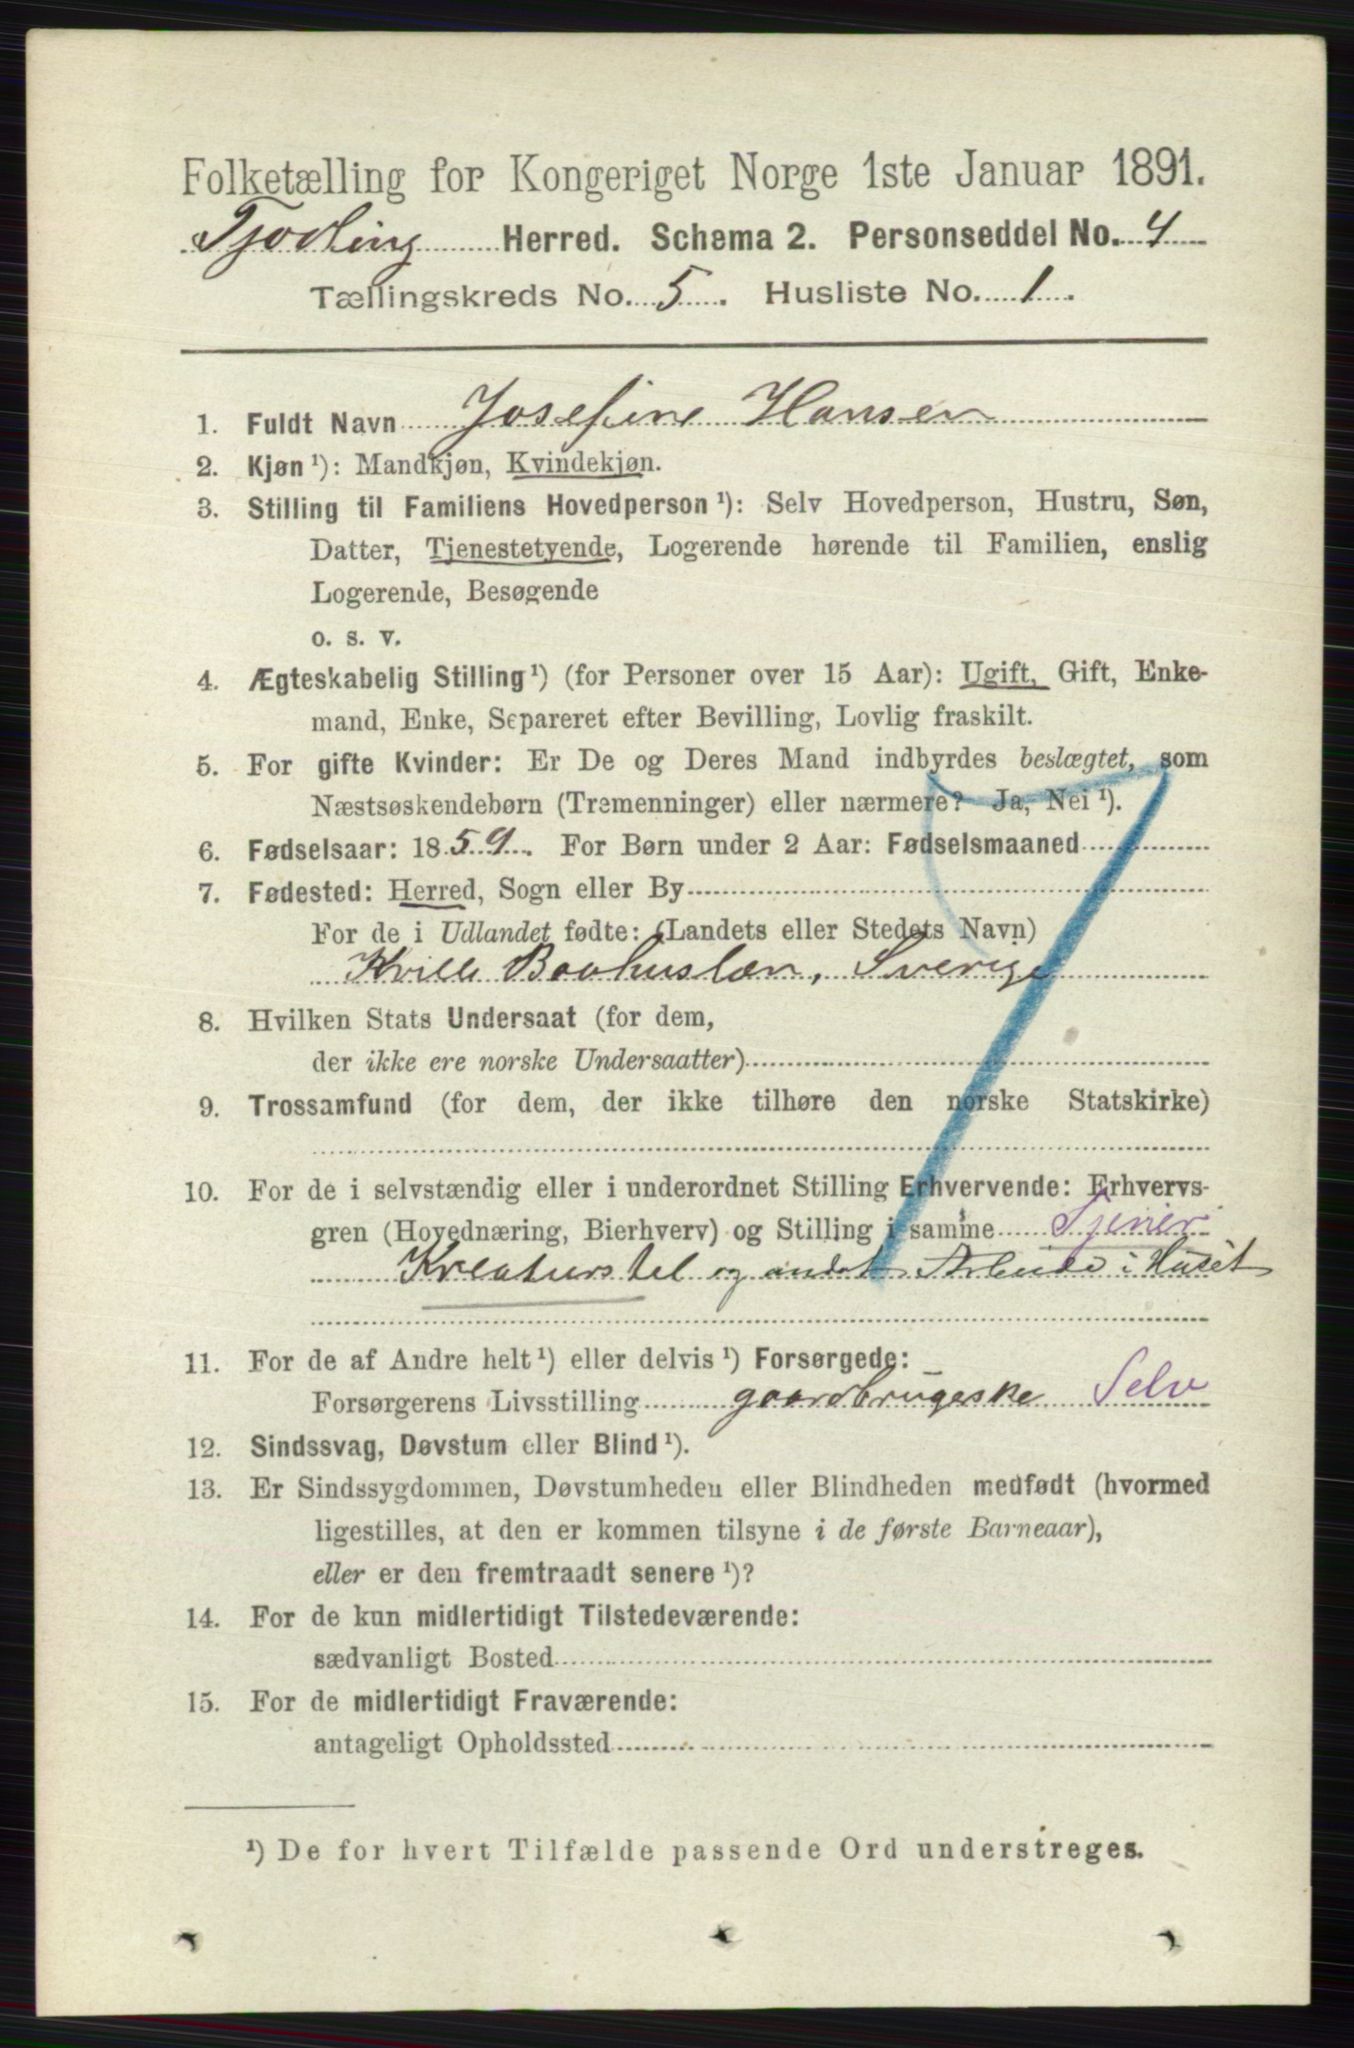 Folketælling for Kongeriget Norge 1ste Januar 1891.
Tjødling Herred. Schema 2. Personseddel No. 4
Tællingskreds No. 5. Husliste No. 1.
1. Fuldt Navn Josefine Hansen
2. Kjøn ¹): Mandkjøn, Kvindekjøn.
3. Stilling til Familiens Hovedperson ¹): Selv Hovedperson, Hustru, Søn,
Datter, Tjenestetyende, Logerende hørende til Familien, enslig
Logerende, Besøgende
o. s. v.
4. Ægteskabelig Stilling ¹) (for Personer over 15 Aar): Ugift, Gift, Enke-
mand, Enke, Separeret efter Bevilling, Lovlig fraskilt.
5. For gifte Kvinder: Er De og Deres Mand indbyrdes beslægtet, som
Næstsøskendebørn (Tremenninger) eller nærmere? Ja, Nei ¹).
6. Fødselsaar: 1859. For Børn under 2 Aar: Fødselsmaaned
7. Fødested: Herred, Sogn eller By
For de i Udlandet fødte: (Landets eller Stedets Navn)
Kville Baahuslæn, Sverige
8. Hvilken Stats Undersaat (for dem,
der ikke ere norske Undersaatter)
9. Trossamfund (for dem, der ikke tilhøre den norske Statskirke)
10. For de i selvstændig eller i underordnet Stilling Erhvervende: Erhvervs-
gren (Hovednæring, Bierhverv) og Stilling i samme Tjener
Kreaturstel og andet Arbeide i Huset
11. For de af Andre helt ¹) eller delvis ¹) Forsørgede:
Forsørgerens Livsstilling gaardbrugeske Selv
12. Sindssvag, Døvstum eller Blind ¹).
13. Er Sindssygdommen, Døvstumheden eller Blindheden medfødt (hvormed
ligestilles, at den er kommen tilsyne i de første Barneaar),
eller er den fremtraadt senere ¹)?
14. For de kun midlertidigt Tilstedeværende:
sædvanligt Bosted
15. For de midlertidigt Fraværende:
antageligt Opholdssted
¹) De for hvert Tilfælde passende Ord understreges.